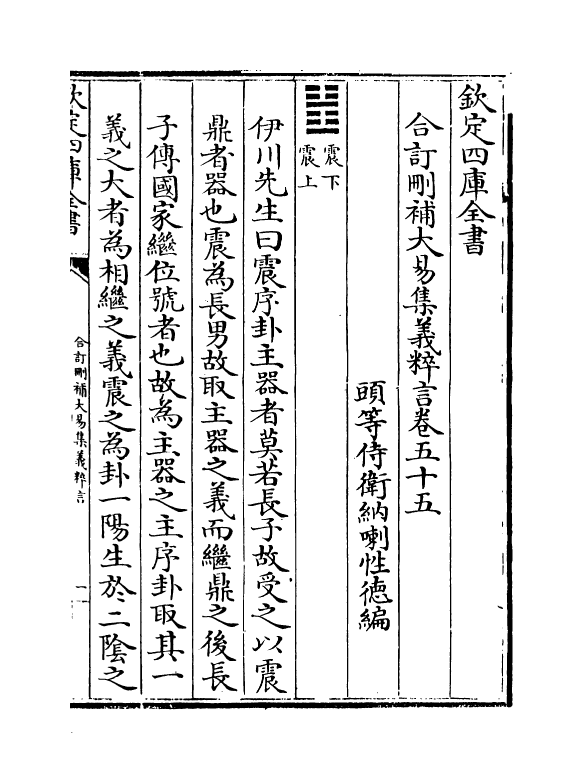 欽定四庫全書
合訂刪補大易集義粹言卷五十五
頭等侍衛納喇性徳編
震下
震上
伊川先生曰震序卦主器者莫若長子故受之以震
鼎者器也震為長男故取主器之義而繼鼎之後長
子傳國家繼位號者也故為主器之主序卦取其一
義之大者為相繼之義震之為卦一陽生於二隂之
欽定四庫全書
合訂刪補大易集義粹言
一